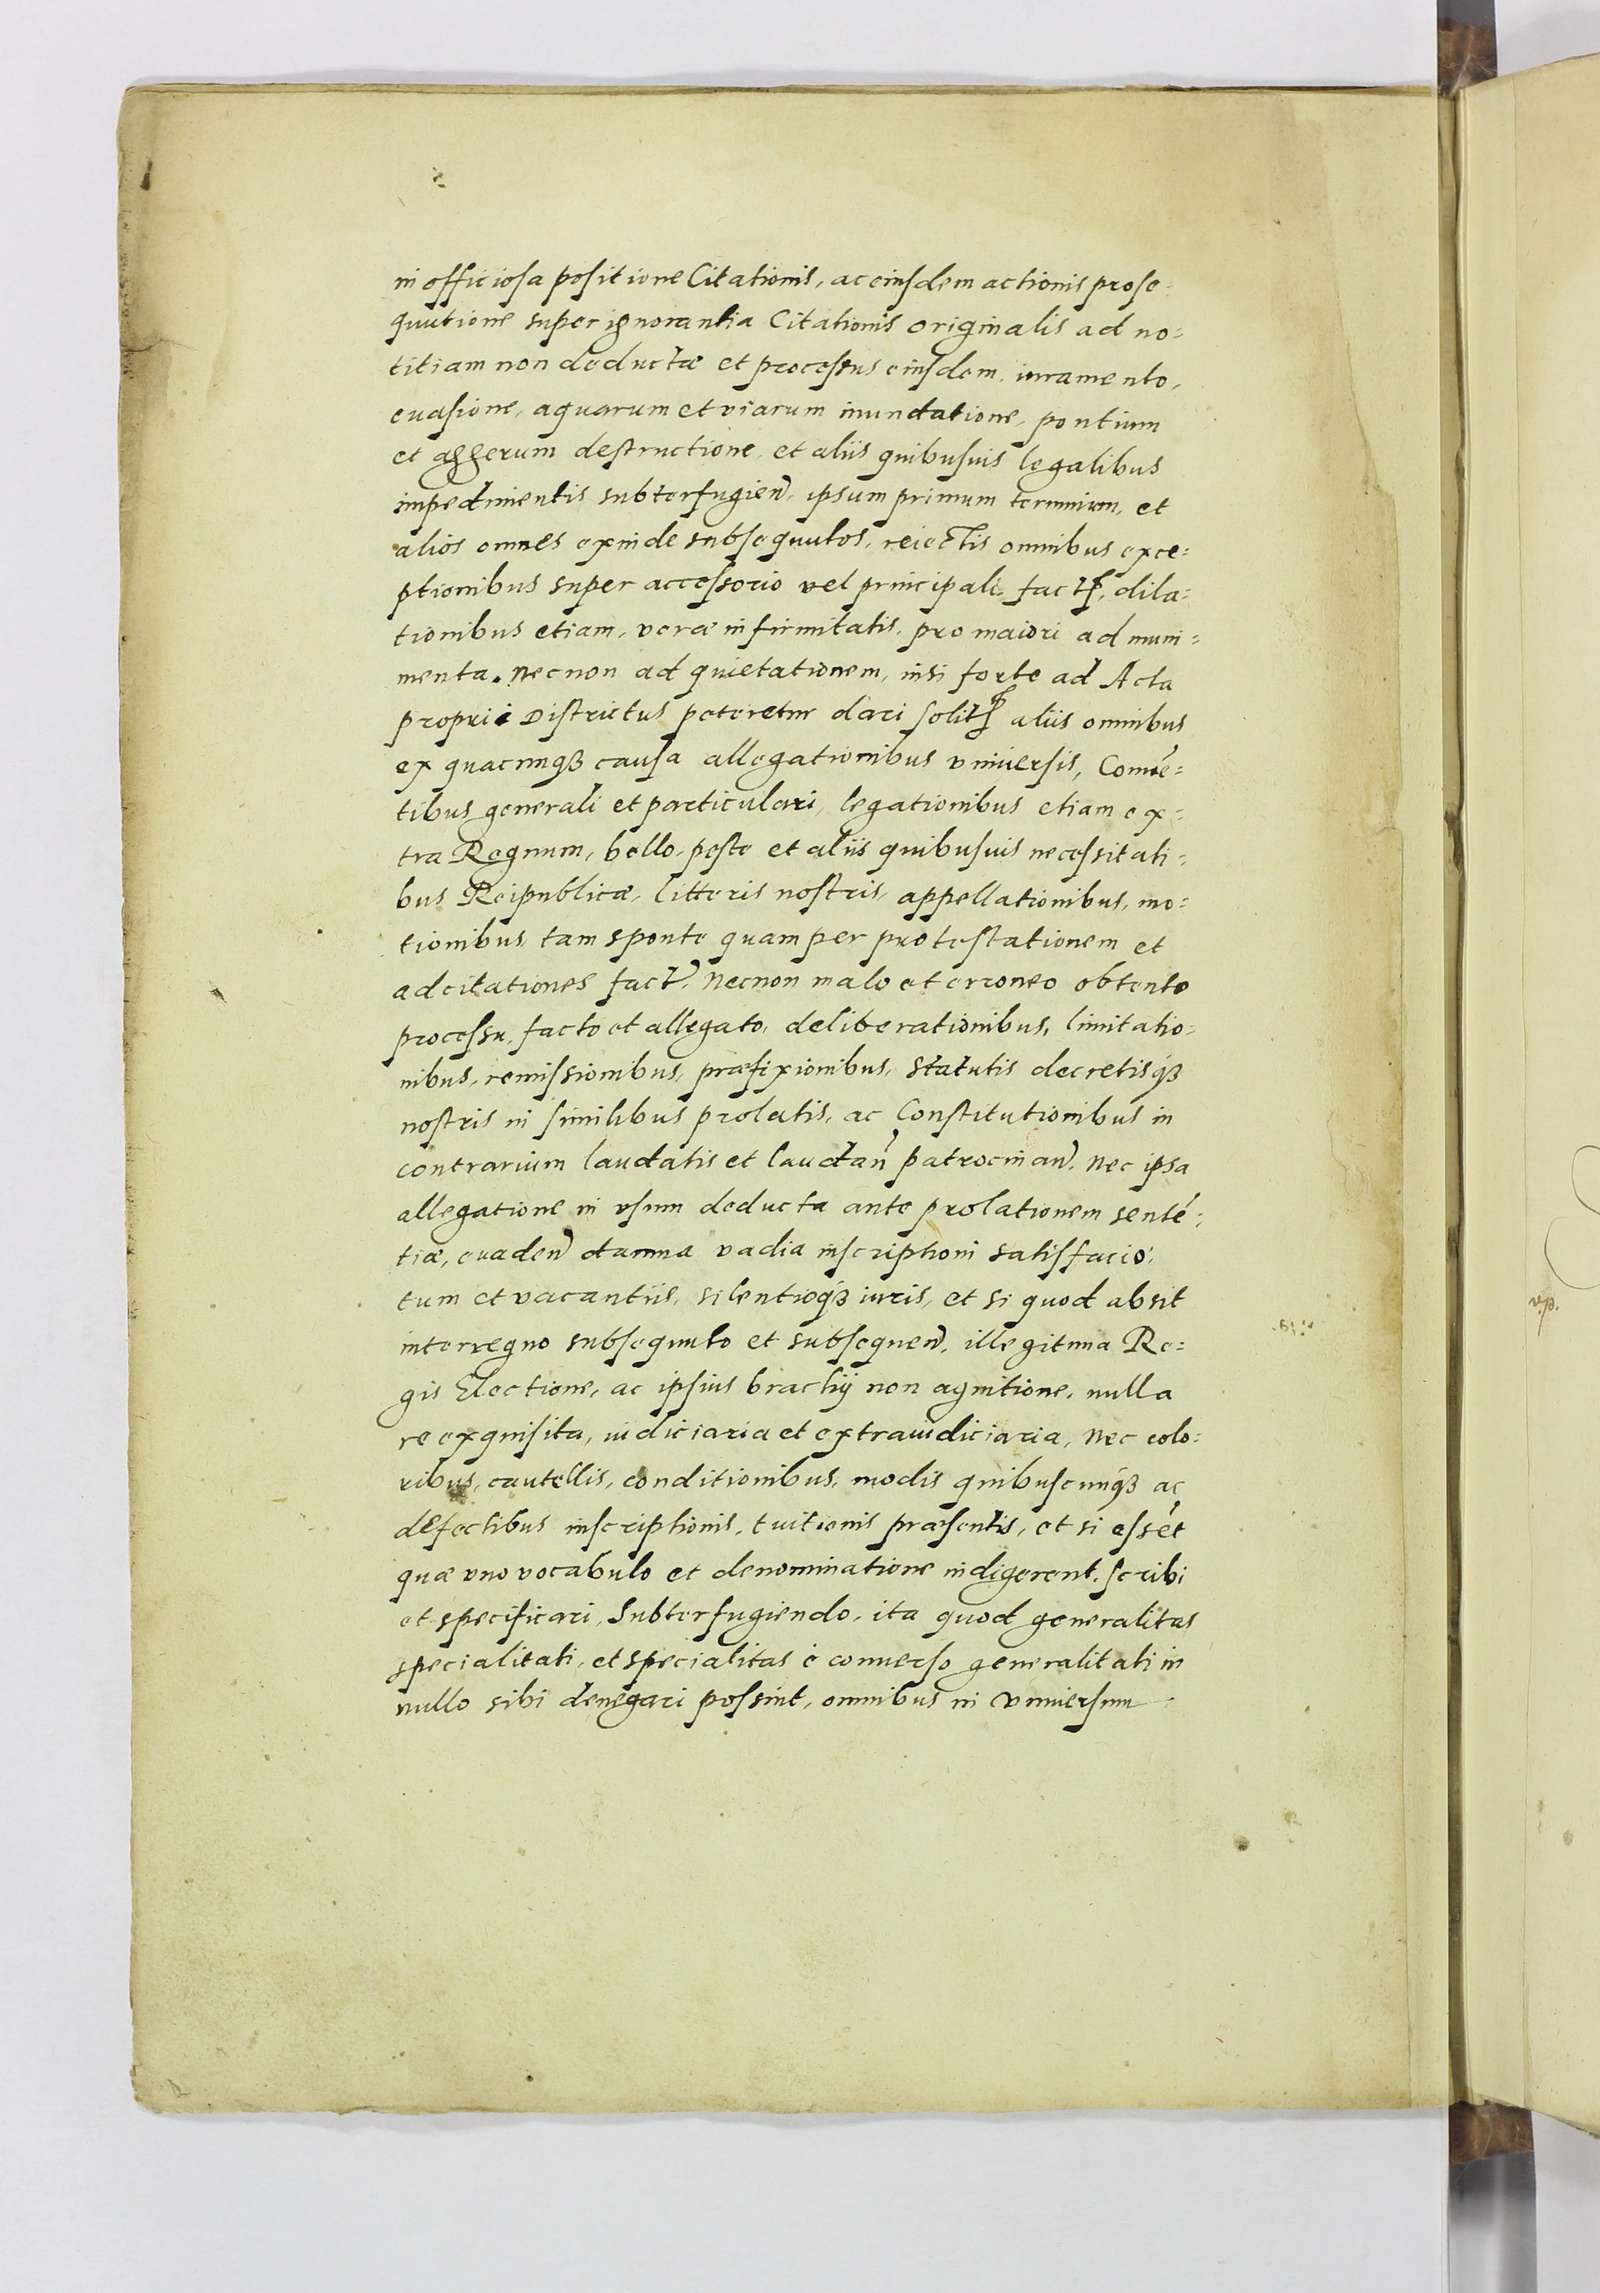 in officiosa positione Citationis, ac eiusdem actionis prose-
quutione super ignorantia Citationis originalis ad no=
titiam non deductæ et processus eiusdem, iuramento,
euasione, aquarum et viarum inundatione, pontium
et aggerum destructione, et aliis quibusuis legalibus
impedimentis subterfugien̄, ipsum primum terminum, et
alios omnes exinde subsequutos, reiectis omnibus exce=
ptionibus super accessorio vel principali fact, dila=
tionibus etiam, veræ infirmitatis, pro maiori ad muni=
menta. Necnon ad quietationem, nisi forte ad Acta
proprii Districtus peteretur dari solit aliis omnibus
ex quacunqꝫ causa allegationibus vniuersis, Conuē=
tibus generali et particulari, legationibus etiam ex=
tra Regnum, bello, peste et aliis quibusuis necessitati=
bus Reipublicæ, litteris nostris, appellationibus, mo=
tionibus tam sponte quam per protestationem et
adcitationes fact, Necnon malo et erroneo obtento
processu, facto et allegato, deliberationibus, limitatio=
nibus, remissionibus, præfixionibus, statutis decretisqꝫ
nostris in similibus prolatis, ac Constitutionibus in
contrarium laudatis et laudan̄ patrocinan̄, nec ipsa
allegatione in vsum deducta ante prolationem sentē=
tiæ, euaden̄ damna vadia inscriptioni satisfacio=
tum et vacantiis, silentioqꝫ iuris, et si quod absit
interregno subsequuto et subsequen̄, illegitima Re=
gis Electione, ac ipsius brachij non agnitione, nulla
re exquisita, iudiciaria et extraiudiciaria, nec colo=
ribus, cautellis, conditionibus, modis quibuscunqꝫ ac
defectibus inscriptionis, tuitionis præsentis, et si essēt
quæ vno vocabulo et denominatione indigerent, scribi
et specificari, Subterfugiendo, ita quod generalitas
specialitati, et specialitas è conuerso generalitati in
nullo sibi denegari possint, omnibus in vniuersum